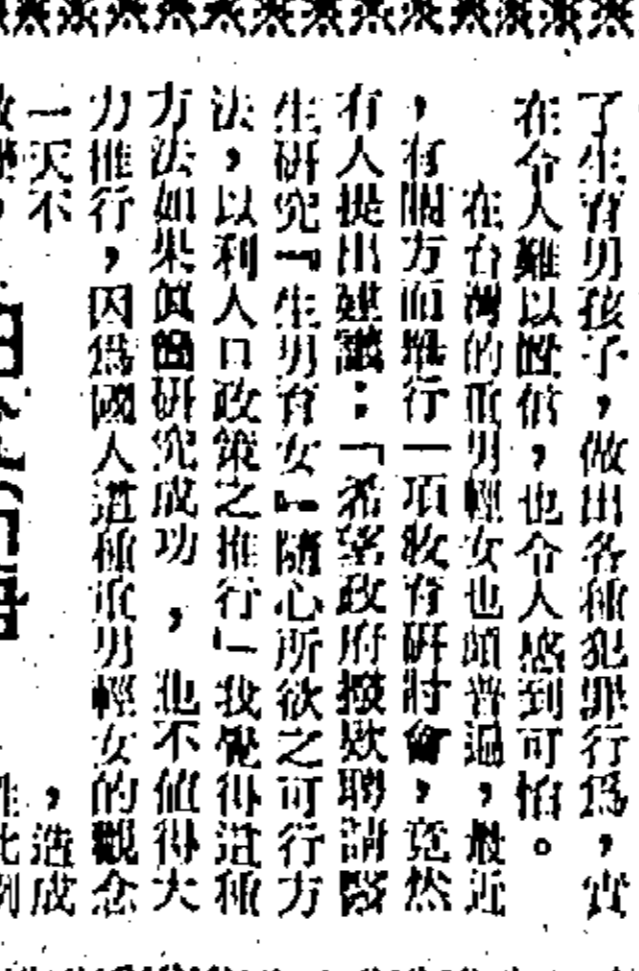 了生育男孩子，做出各種犯罪行爲，實
在令人難以置信，也令人感到可怕。
在台灣的重男輕女也頗普遍，最近
，有關方面推行一項教育研討會，竟然
有人提出建議：「希望政府撥款聘請醫
生研究『生男育女』隨心所欲之可行方
法，以利人口政策之推行」我覺得這種
方法如果眞的研究成功，也不値得大
力推行，因爲國人這種重男輕女的觀念
一天不
，造成